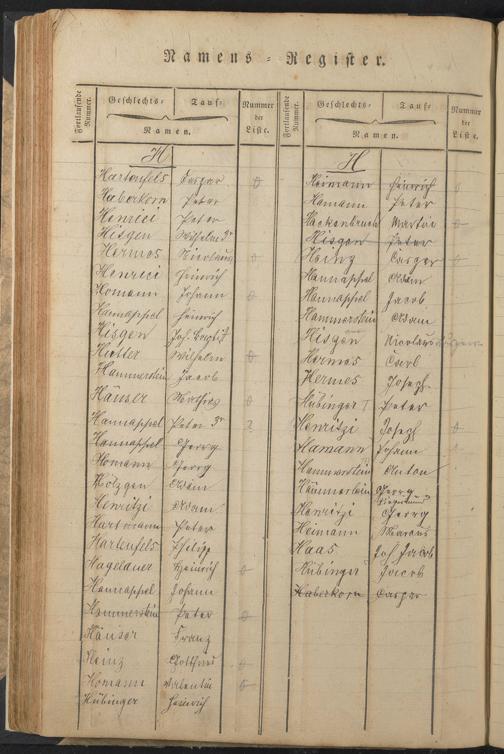 Namens-Register.
Fortlaufende Nummer. Geschlechts- Tauf- Nummer der Liste.
Namen.
H
Hartenfels Caspar 0
Haberkorn Peter
Henrici Peter
Hisgen Wilhelm 3r
Hermes Nicolaus 0
Henrici Heinrich
Homann Johann 0
Hannappel Heinrich
Hisgen Joh.
Wilhelm 0
Hammerstein Jacob
Häuser Mathias 0
Hannappel Peter 3r 2
Hannappel Georg
Homann Georg
Hölzgen Adam
Henritzi Adam
Hartmann Peter
Hartenfels Philipp
Hagelauer Heinrich 0
Hannappel Johann
Hammerstein Peter 0
Häuser Franz
Heinz 0
Homann Valentin 0
Hübinger Heinrich
Fortlaufende Nummer. Geschlechts- Tauf- Nummer der Liste.
Namen.
H
Heimann Heinrich 0
Hamann Peter
Hackenbruch Martin 0
Hisgen Peter
Heinz Casper 0
Hannappel Adam
Hannappel Jacob
Hammerstein Adam
Hisgen Nicolaus
Hermes Carl
Hermes Joseph
Hübinger Peter
Henritzi Joseph 0
Hamann Johann
Hammerstein Anton
Hämmerlein Georg
Henritzi Georg
Heimann Marcus
Haas Joh. Jacob
Hübinger Jacob
Haberkorn Caspar